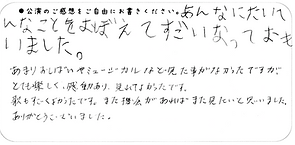 ●公演のご感想をご自由にお書きください。あんなにたいて
んなことをおぼえてすごいなっておも
いました。
あまりおしばいやミュージカルなど見た事がなかったですが
とても楽しく、感動あり、見れてよかったです。
歌もすごくよかったです。また機会があればまた見たいと思いました。
ありがとうございました。